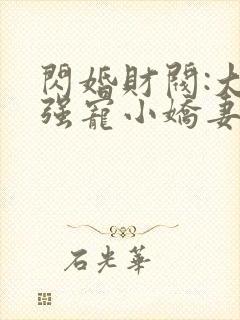 閃婚財閥:大
强寵小嬌妻
石光華